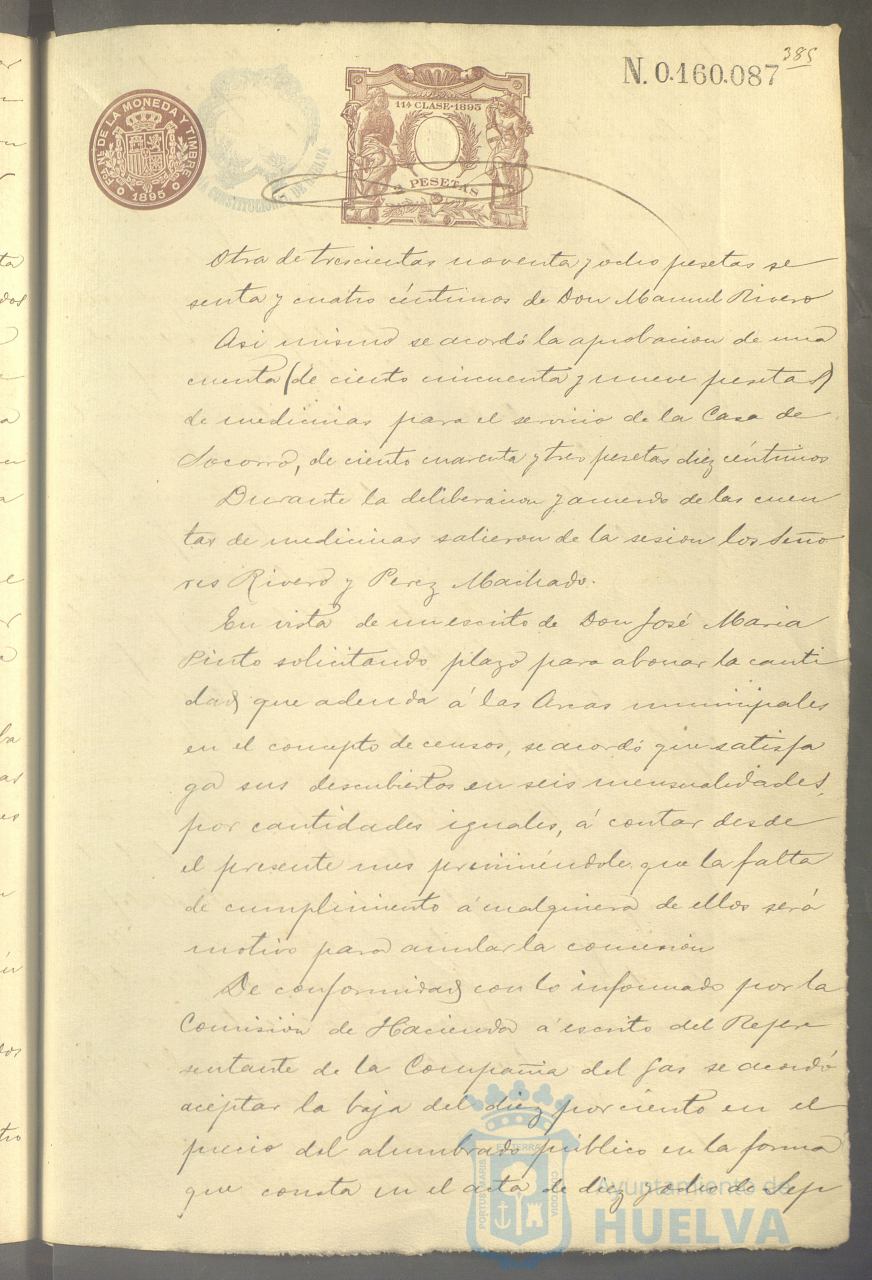 385
N.0.160.087
11ª CLASE·1895
FCA. NL. DE LA MONEDA Y TIMBRE
1895
PESETAS
Otra de trescientas noventa y ocho pesetas se
senta y cuatro céntimos de Don Manuel Rivero
Asi mismo se acordó la aprobacion de una
cuenta (de ciento cincuenta y nueve pesetas)
de medicinas para el servicio de la Casa de
Socorro, de ciento cuarenta y tres pesetas diez céntimos
Durante la deliberacion y acuerdo de las cuen
tas de medicinas salieron de la sesion los Seño
res Rivero y Perez Machado.
En vista de un escrito de Don José Maria
Pinto solicitando plazo para abonar la canti
dad que adeuda á las Arcas municipales
en el concepto de censos, se acordó que satisfa
ga sus descubiertos en seis mensualidades,
por cantidades iguales, á contar desde
el presente mes previniéndole que la falta
de cumplimiento á cualquiera de ellos será
motivo para anular la concesion
De conformidad con lo informado por la
Comisión de Hacienda á escrito del Repre
sentante de la Compañia del Gas se acordó
aceptar la baja del diez por ciento en el
precio del alumbrado público en la forma
que consta en el acta de diez y ocho de Sep
Ayuntamiento de
HUELVA